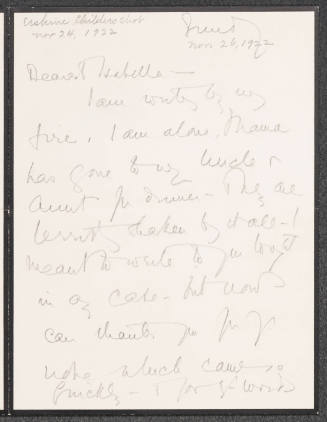 Erskine Childers shot
Nov 24, 1922
Sunday
Nov 26, 1922
Dearest Isabella —
I am writing by my
fire. I am alone. Mama
has gone to my Uncle &
Aunt for dinner — They are
terribly shaken by it all — I
meant to write to you tonight
in any case — but now I
can thank you for yr
note which came so
quickly — & for yr words